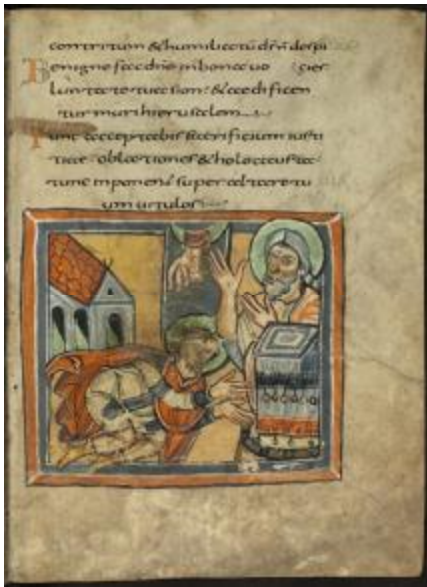 contritum & humiliatū d̄s n̄ despi
Benigne fac dn̄e in bona uo cies
luntate tua sion: & aedificen
tur muri hierusalem
Tunc acceptabis sacrificium iusti
tiae oblationes & holocausta
tunc inponent super altare tu
um uitulos